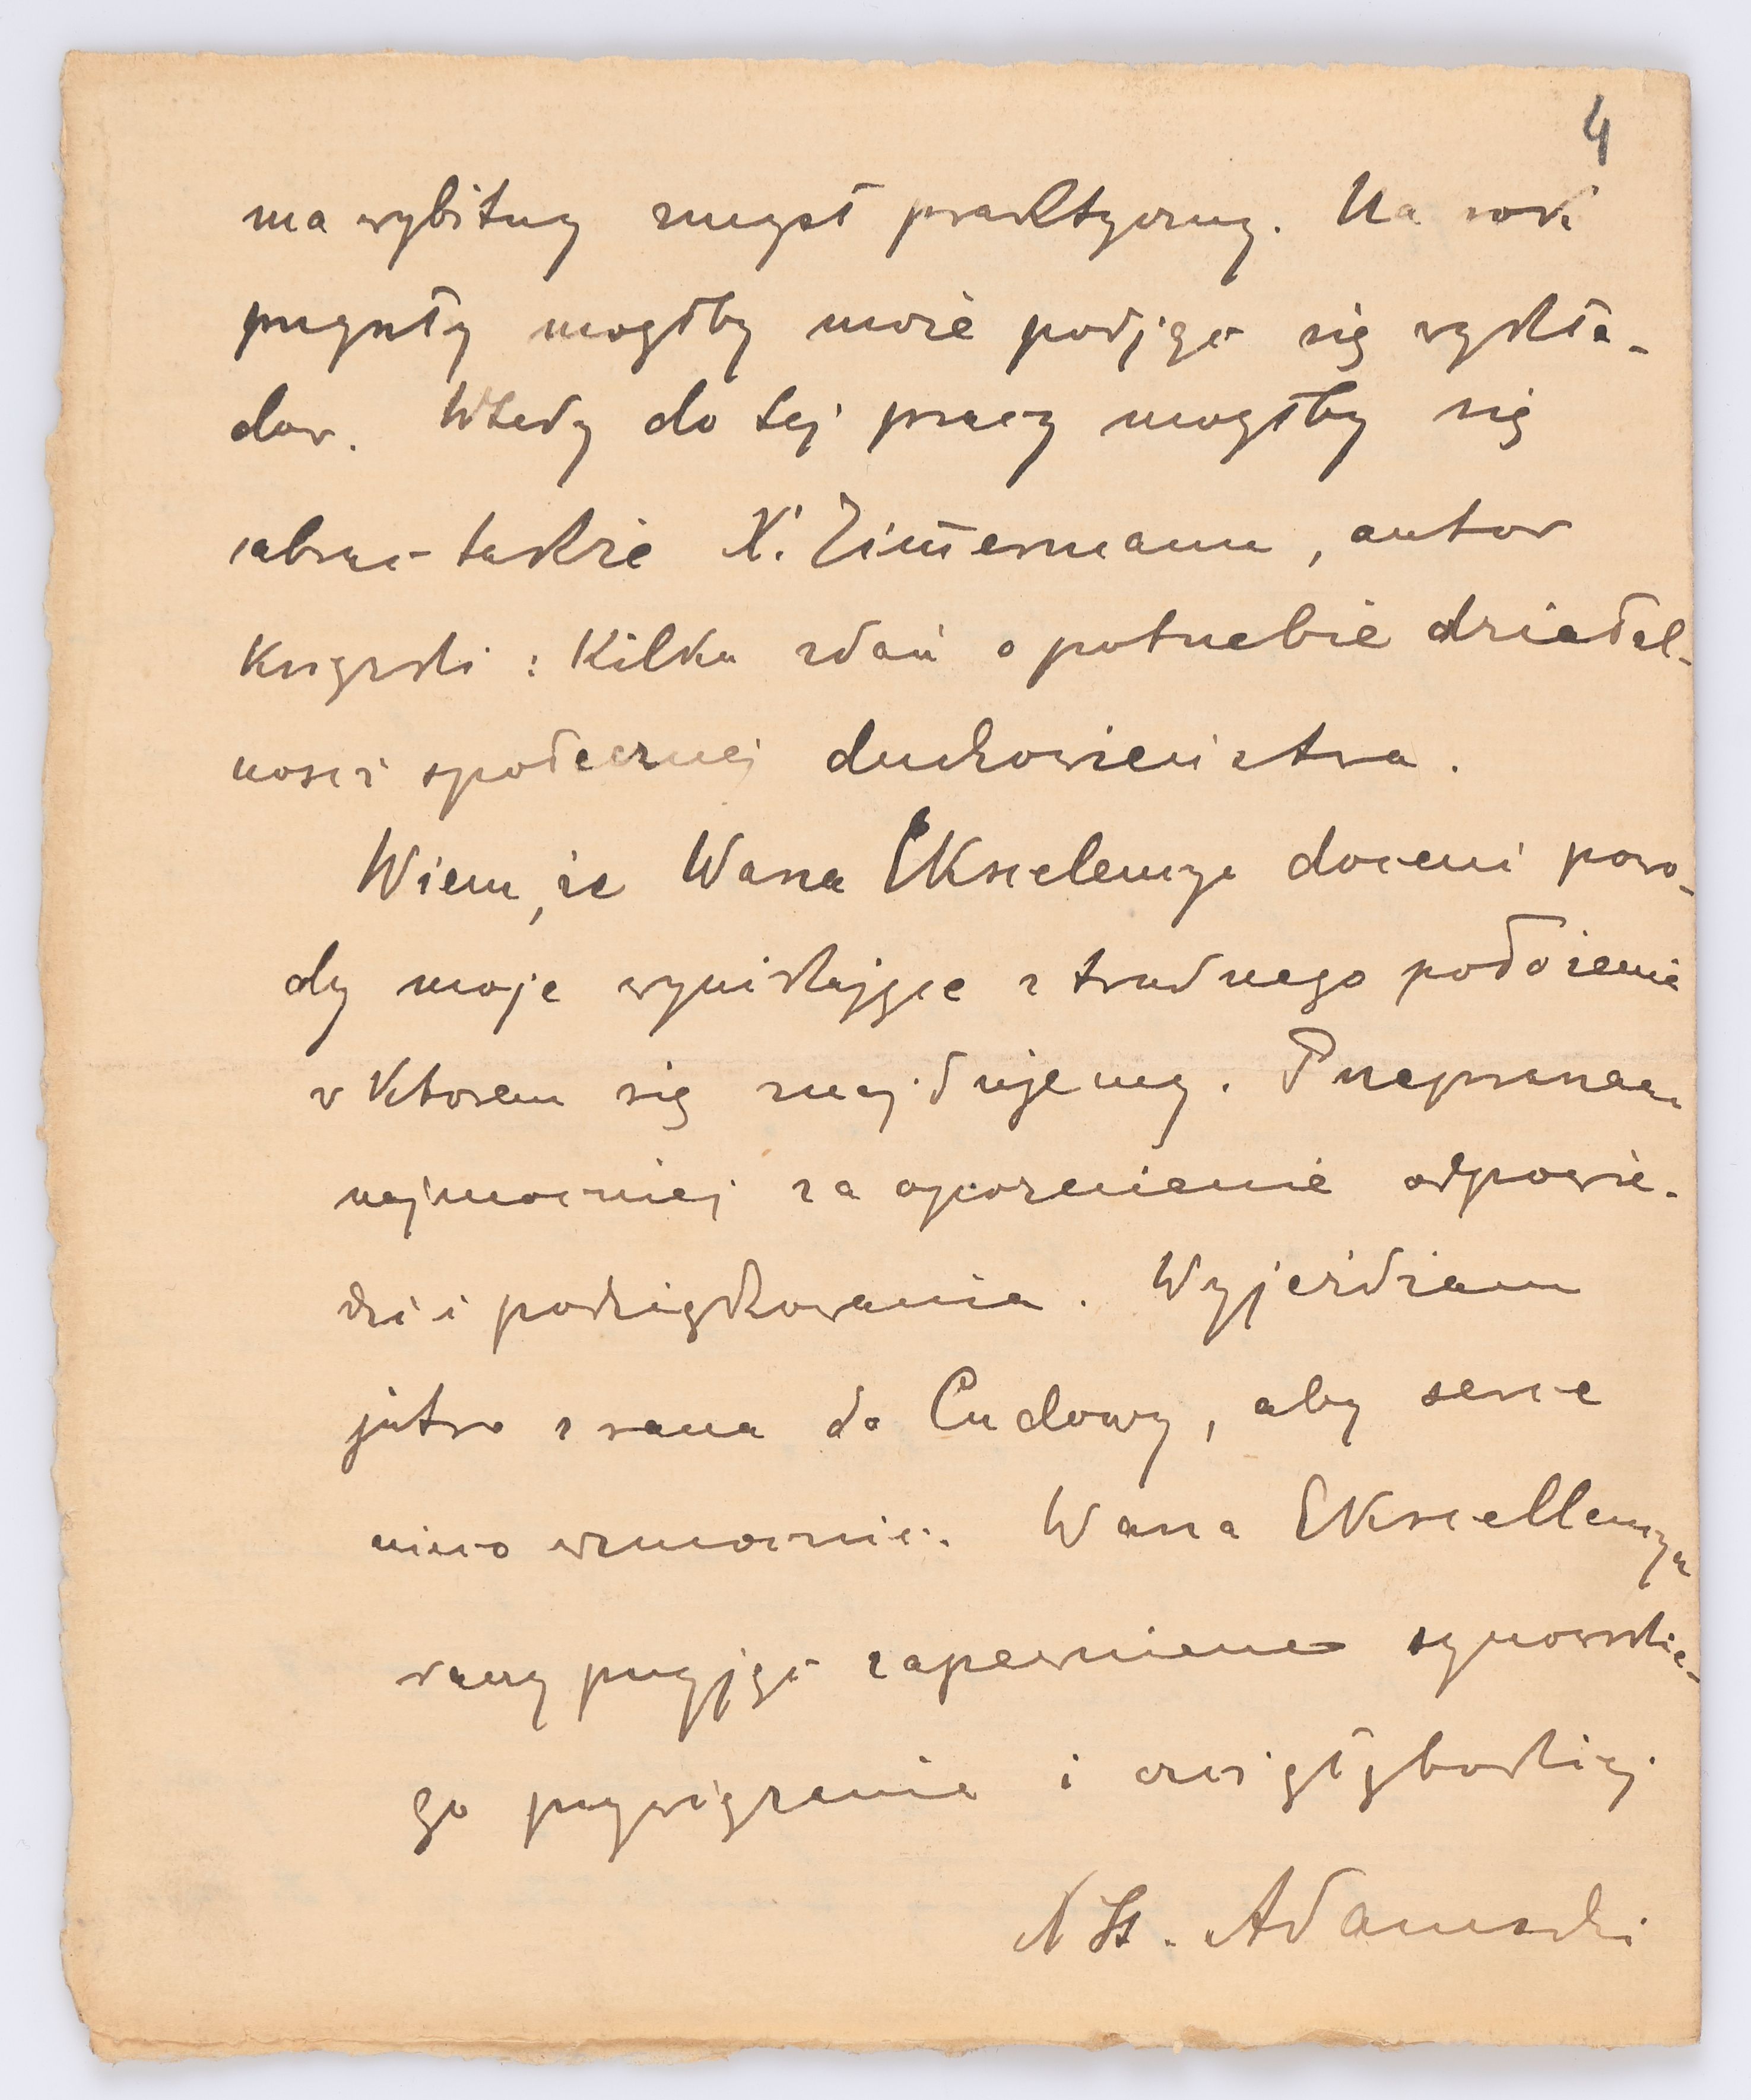 4
ma wybitny zmysł praktyczny. Na rok
przyszły mógłby może podjąć się wykła-
dów. Wtedy do tej pracy mógłby się
zabrać także X. Zim̄ermann, autor
książki : Kilka zdań o potrzebie działal-
ności społecznej duchowieństwa.
Wiem, że Wasza Ekscelencya doceni powo-
dy moje wynikające z trudnego położenia
w którem się znajdujemy. Przepraszam
najmocniej za opóźnienie odpowie-
dzi i podziękowania. Wyjeżdżam
jutro z rana do Cudowy, aby serce
nieco wzmocnić. Wasza Ekscellencya
raczy przyjąć zapewnienie synowskie-
go przywiązania i czci głębokiej
X St. Adamski